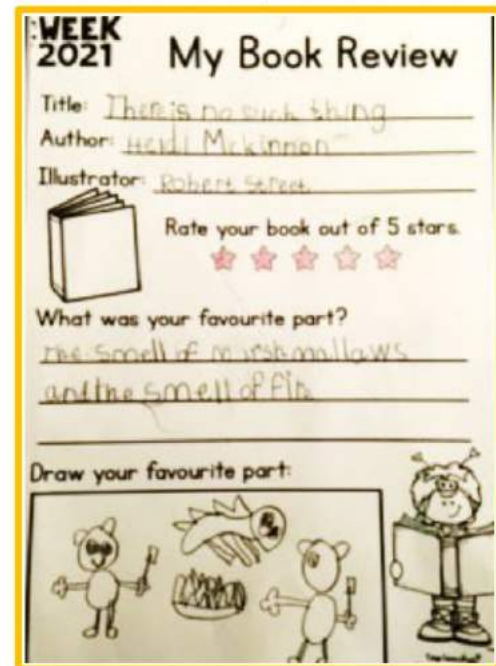 WEEK
2021
My Book Review
Title: There is no such thing
Author: Heidi Mckinnon
Illustrator: Robert Street
Rate your book out of 5 stars.
What was your favourite part?
The smell of marshmallaws
and the smell of
Draw your favourite part: